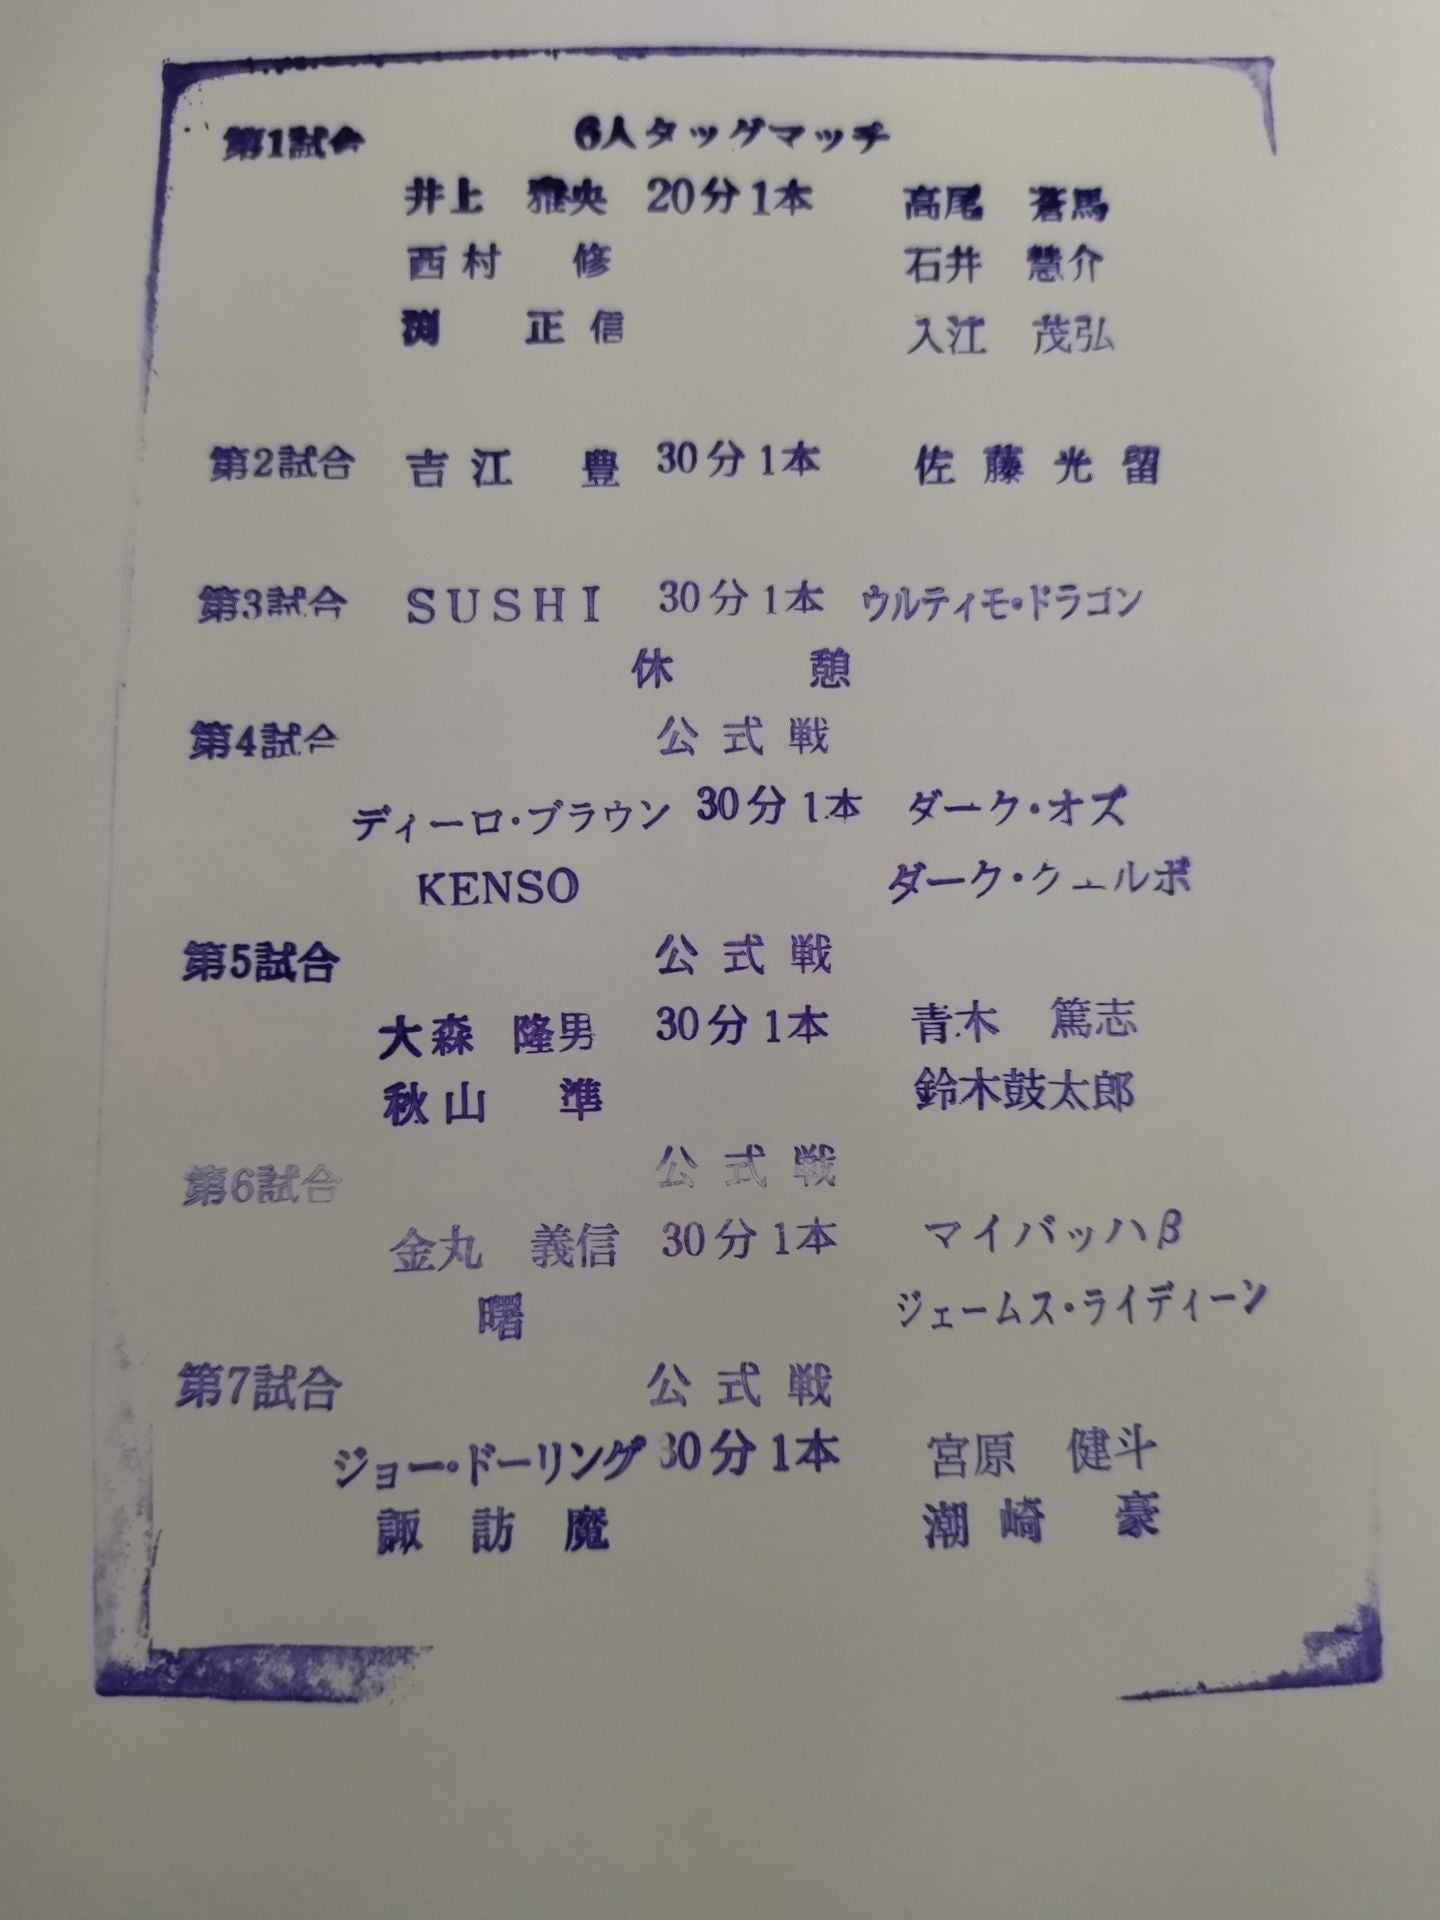 第1試合 6人タッグマッチ
井上 雅央 20分1本 高尾 蒼馬
西村 修 石井 慧介
渕 正信 入江 茂弘
第2試合 吉江 豊 30分1本 佐藤光留
第3試合 SUSHI 30分1本 ウルティモ・ドラゴン
休憩
第4試合 公式戦
ディーロ・ブラウン 30分1本 ダーク・オズ
KENSO ダーク・クエルボ
第5試合 公式戦
大森 隆男 30分1本 青木 篤志
秋山 準 鈴木鼓太郎
第6試合 公式戦
金丸 義信 30分1本 マイバッハβ
曙 ジェームス・ライディーン
第7試合 公式戦
ジョー・ドーリング 30分1本 宮原 健斗
諏訪魔 潮崎 豪